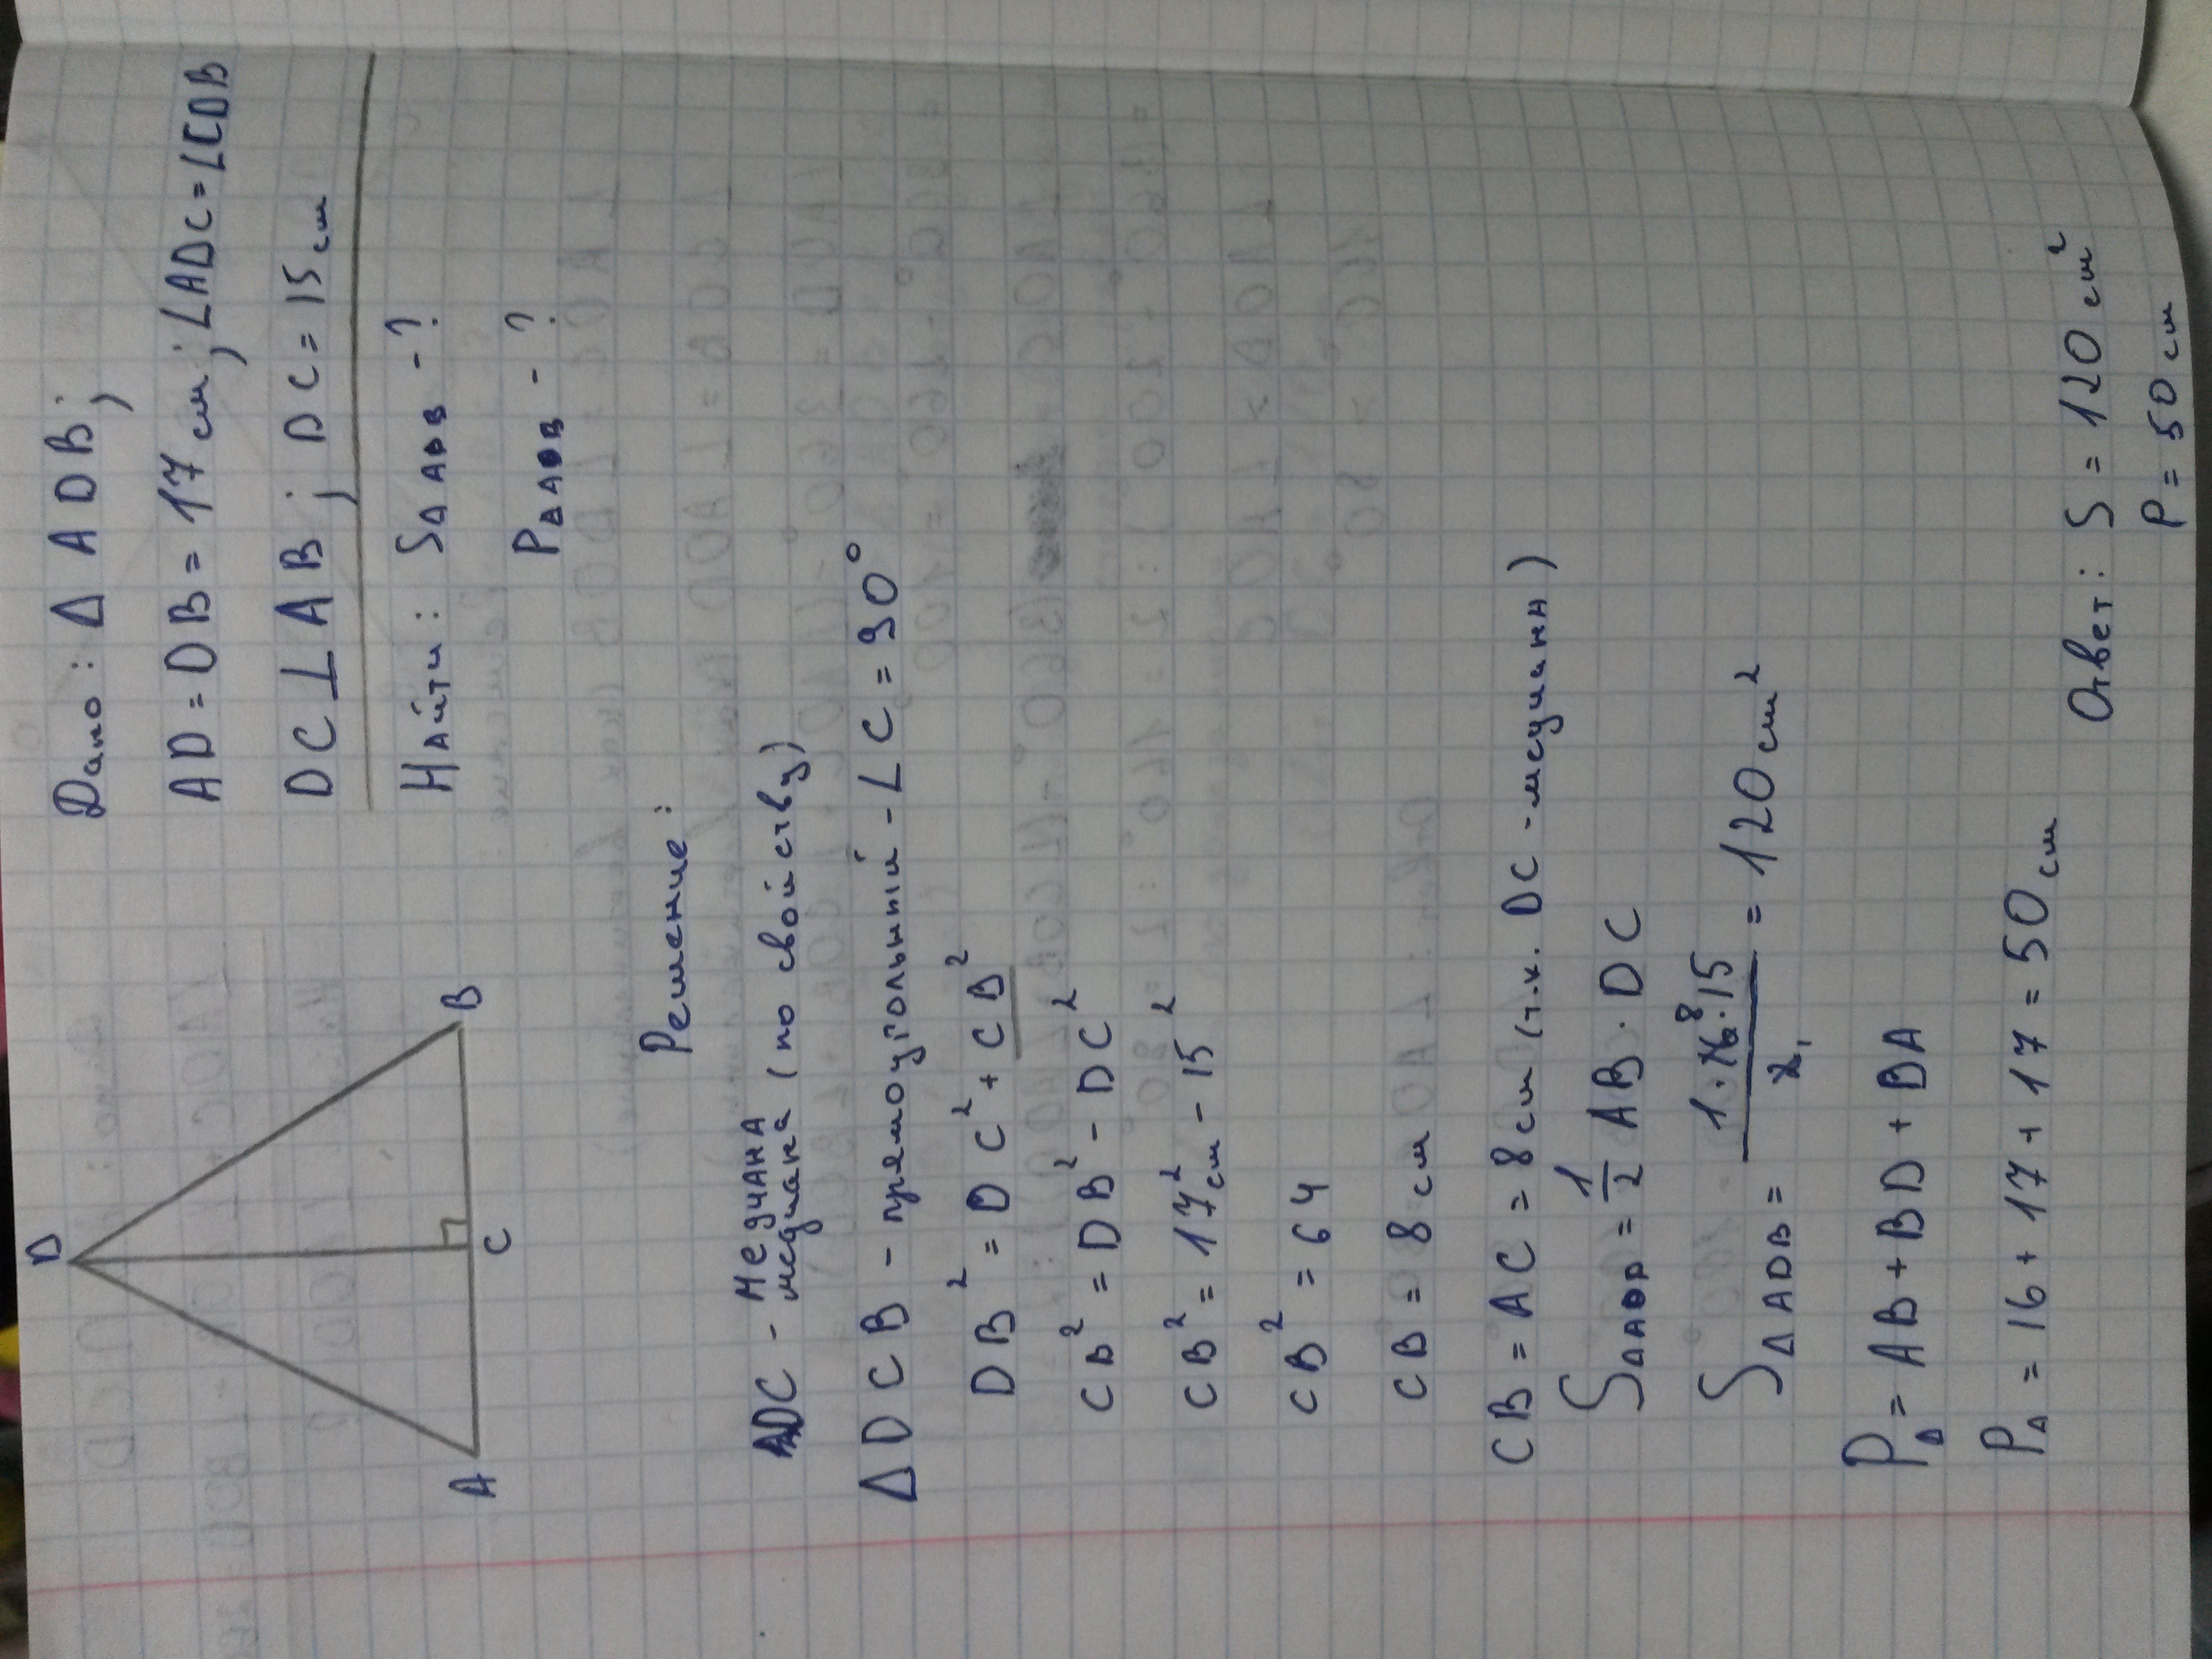 D
A
C
B
Дано: Δ ADB;
AD = DB = 17 см; ∠ADC = ∠CDB
DC ⊥ AB; DC = 15 см
Найти: SΔADB - ?
PΔADB - ?
Решение:
DC - медиана
медиана (по свойству)
ΔDCB - прямоугольный - ∠C = 90°
DB² = DC² + CB²
CB² = DB² - DC²
CB² = 17² см - 15²
CB² = 64
CB = 8 см
CB = AC = 8 см (т.к. DC - медиана)
SΔADB = 1/2 AB · DC
SΔADB = 1 · 16 8 · 15 / 2 1 = 120 см²
PΔ = AB + BD + BA
PΔ = 16 + 17 + 17 = 50 см
Ответ: S = 120 см²
P = 50 см